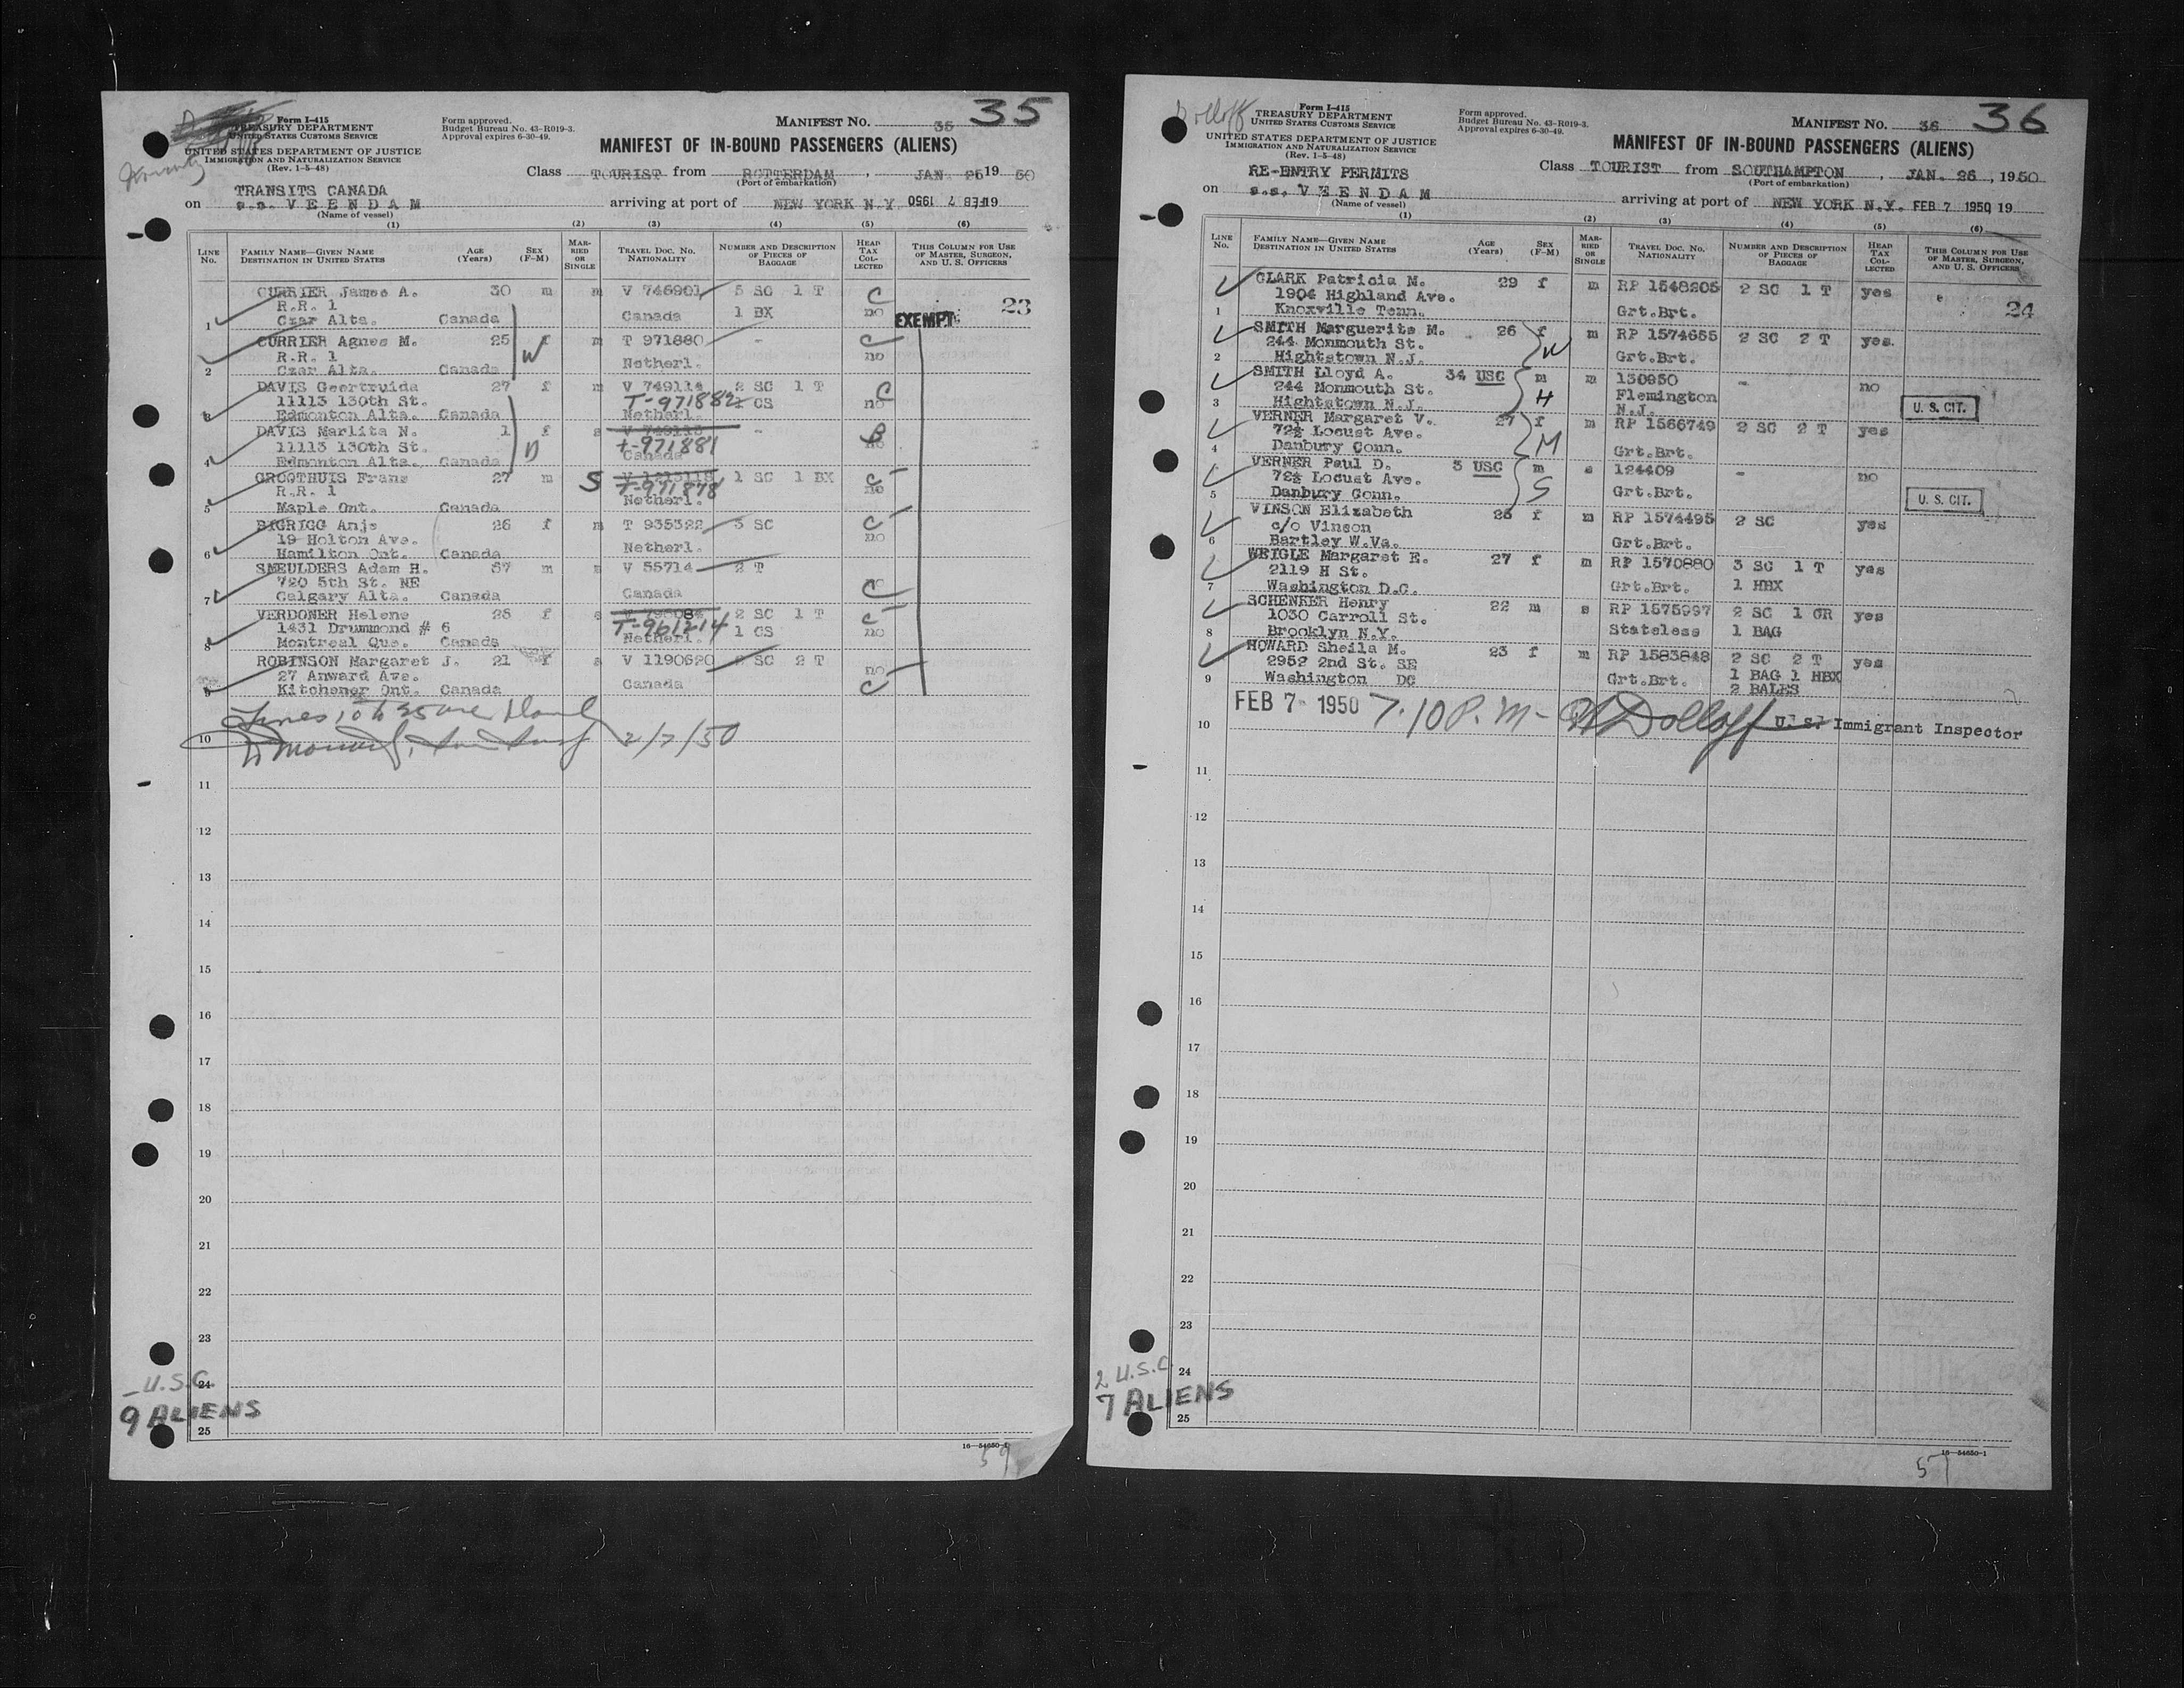 35
Form I-415
TREASURY DEPARTMENT
UNITED STATES CUSTOMS SERVICE
UNITED STATES DEPARTMENT OF JUSTICE
IMMIGRATION AND NATURALIZATION SERVICE
(Rev. 1-5-48)
Form approved.
Budget Bureau No. 43-R019-3.
Approval expires 6-30-49.
MANIFEST NO. 35
MANIFEST OF IN-BOUND PASSENGERS (ALIENS)
Class TOURIST from ROTTERDAM, JAN 26 19 50
(Port of embarkation)
TRANSITS CANADA
on s.s. VEENDAM arriving at port of NEW YORK N.Y. FEB 7 1950 19
(Name of vessel)
(1) (2) (3) (4) (5) (6)
LINE No. FAMILY NAME—GIVEN NAME DESTINATION IN UNITED STATES AGE (Years) SEX (F-M) MARRIED OR SINGLE TRAVEL DOC. NO. NATIONALITY NUMBER AND DESCRIPTION OF PIECES OF BAGGAGE HEAD TAX COLLECTED THIS COLUMN FOR USE OF MASTER, SURGEON, AND U. S. OFFICERS
CURRIER James A. 30 m m V 746901 5 SC 1 T C
R.R. 1 1 BX no EXEMPT 23
1 Czar Alta. Canada Canada
CURRIER Agnes M. 25 f m T 971880 - C
R.R. 1 W no
2 Czar Alta. Canada Netherl.
DAVIS Geertruida 27 f m V 749114 2 SC 1 T C
11113 130th St. T-971882 CS no
3 Edmonton Alta. Canada Netherl.
DAVIS Marlita N. 1 f s V 749113 - B
11113 130th St. D T-971881 no
4 Edmonton Alta. Canada Canada
GROOTHUIS Frans 27 m S V 1213118 1 SC 1 BX C
R.R. 1 T-971878 no
5 Maple Ont. Canada Netherl.
BIGRIGG Anje 26 f m T 935322 3 SC C
19 Holton Ave. no
6 Hamilton Ont. Canada Netherl.
SMEULDERS Adam H. 57 m s V 55714 2 T
720 5th St. NE no
7 Calgary Alta. Canada Canada C
VERDONER Helene 28 f s 2 SC 1 T C
1431 Drummond # 6 T-961214 1 CS no
8 Montreal Que. Canada Netherl.
ROBINSON Margaret J. 21 f s V 1190620 2 SC 2 T
27 Anward Ave. no
9 Kitchener Ont. Canada Canada C
Lines 10 to 25 are blank
10 2/7/50
11
12
13
14
15
16
17
18
19
20
21
22
23
- U.S.C. 24
9 ALIENS
25
16-54650-1
59
36
Dolloff
Form I-415
TREASURY DEPARTMENT
UNITED STATES CUSTOMS SERVICE
UNITED STATES DEPARTMENT OF JUSTICE
IMMIGRATION AND NATURALIZATION SERVICE
(Rev. 1-5-48)
Form approved.
Budget Bureau No. 43-R019-3.
Approval expires 6-30-49.
MANIFEST NO. 36
MANIFEST OF IN-BOUND PASSENGERS (ALIENS)
Class TOURIST from SOUTHAMPTON, JAN. 26, 1950
(Port of embarkation)
RE-ENTRY PERMITS
on s.s. VEENDAM arriving at port of NEW YORK N.Y. FEB 7 1950 19
(Name of vessel)
(1) (2) (3) (4) (5) (6)
LINE No. FAMILY NAME—GIVEN NAME DESTINATION IN UNITED STATES AGE (Years) SEX (F-M) MARRIED OR SINGLE TRAVEL DOC. NO. NATIONALITY NUMBER AND DESCRIPTION OF PIECES OF BAGGAGE HEAD TAX COLLECTED THIS COLUMN FOR USE OF MASTER, SURGEON, AND U. S. OFFICERS
CLARK Patricia M. 29 f m RP 1548205 2 SC 1 T yes
1904 Highland Ave. 24
1 Knoxville Tenn. Grt.Brt.
SMITH Marguerite M. 26 f m RP 1574655 2 SC 2 T yes
244 Monmouth St. W
2 Hightstown N.J. Grt.Brt.
SMITH Lloyd A. 34 USC m m 130950 - no
244 Monmouth St. H Flemington
3 Hightstown N.J. N.J. U. S. CIT.
VERNER Margaret V. 27 f m RP 1566749 2 SC 2 T yes
72½ Locust Ave. M
4 Danbury Conn. Grt.Brt.
VERNER Paul D. 3 USC m s 124409 - no
72½ Locust Ave. S
5 Danbury Conn. Grt.Brt. U. S. CIT.
VINSON Elizabeth 26 f m RP 1574495 2 SC yes
c/o Vinson
6 Bartley W.Va. Grt.Brt.
WEIGLE Margaret E. 27 f m RP 1570880 3 SC 1 T yes
2119 H St.
7 Washington D.C. Grt.Brt. 1 HBX
SCHENKER Henry 22 m s RP 1575997 2 SC 1 CR yes
1030 Carroll St.
8 Brooklyn N.Y. Stateless 1 BAG
HOWARD Sheila M. 23 f m RP 1583848 2 SC 2 T yes
2952 2nd St. SE 1 BAG 1 HBX
9 Washington DC Grt.Brt. 2 BALES
FEB 7 1950 7.10 P.M- Dolloff
10 U. S. Immigrant Inspector
11
12
13
14
15
16
17
18
19
20
21
22
23
2 U.S.C. 24
7 ALIENS
25
16-54650-1